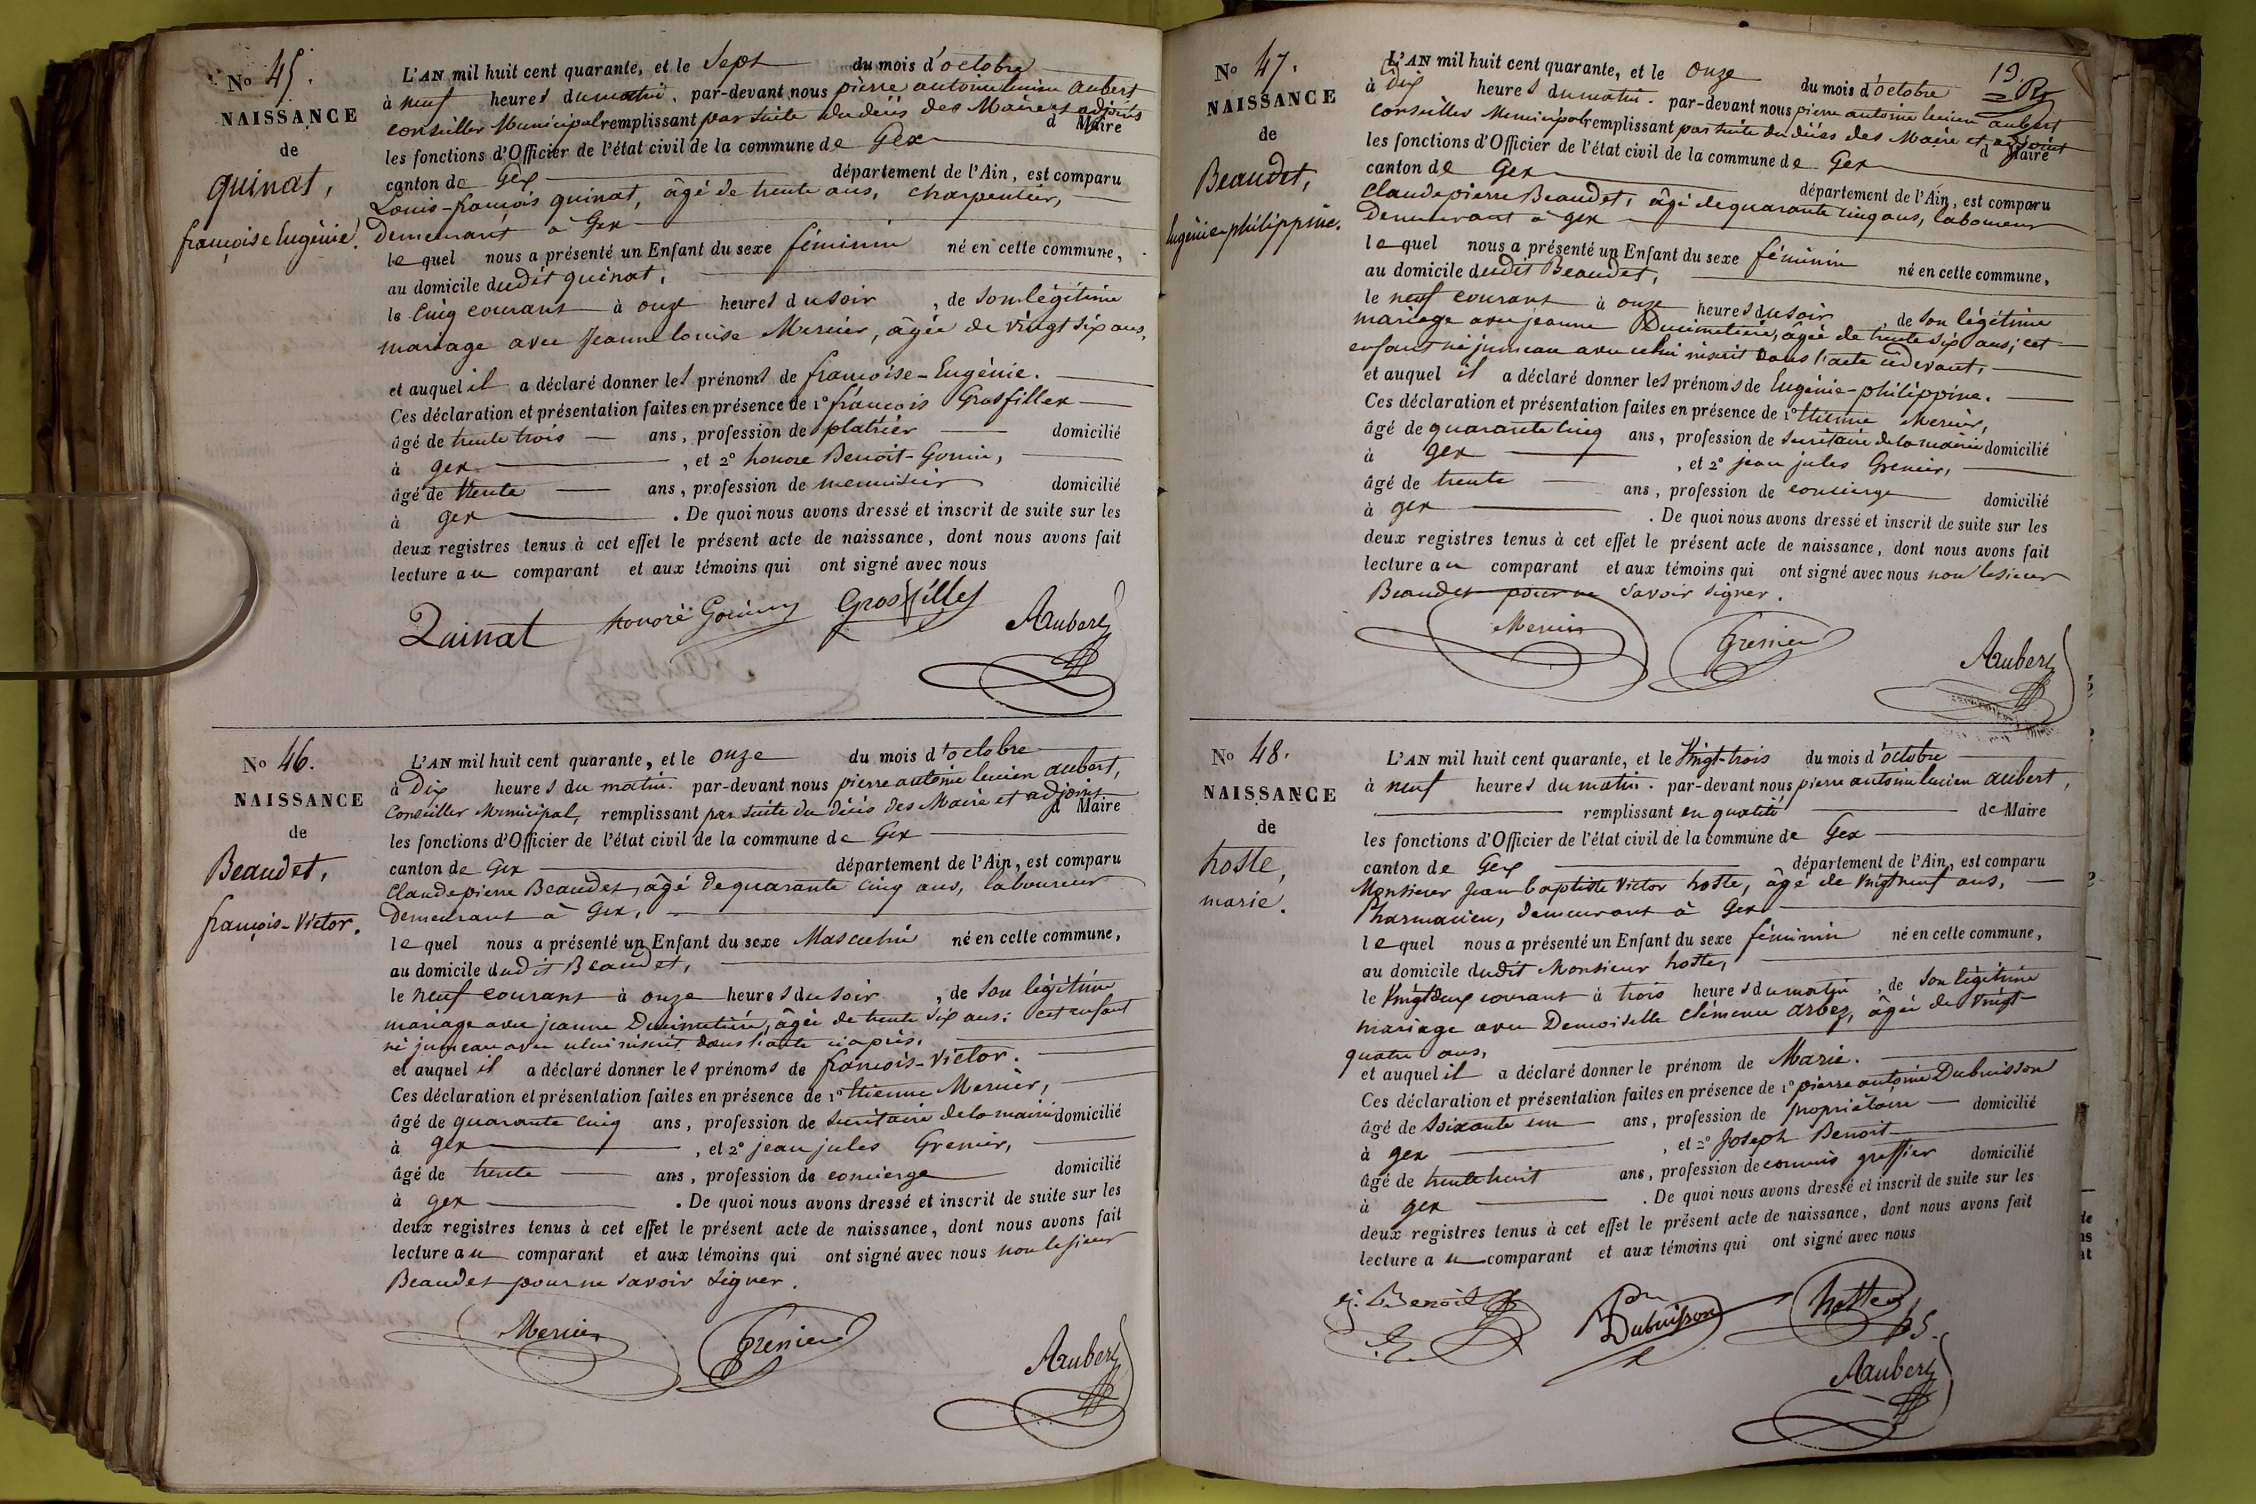 No 45.
NAISSANCE
de
quinat,
françoise Eugénie.
L'AN mil huit cent quarante, et le Sept du mois d'octobre
à neuf heures du matin. par-devant nous pierre antoine lucien aubert
conseiller Municipal remplissant par suite du décès des Maire et adjoint
d Maire
les fonctions d'Officier de l'état civil de la commune de Gex
canton de Gex département de l'Ain, est comparu
Louis-françois quinat, âgé de trente ans, charpentier,
Demeurant à Gex
lequel nous a présenté un Enfant du sexe féminin né en cette commune,
au domicile dudit quinat,
le Cinq courant à onze heures du soir, de son légitime
mariage avec Jeanne Louise Mercier, âgée de vingt six ans,
et auquel il a déclaré donner les prénoms de françoise-Eugénie.
Ces déclaration et présentation faites en présence de 1o françois Grosfillex
âgé de trente trois ans, profession de platrier domicilié
à gex, et 2o honoré Benoit-Gonin,
âgé de trente ans, profession de menuisier domicilié
à gex. De quoi nous avons dressé et inscrit de suite sur les
deux registres tenus à cet effet le présent acte de naissance, dont nous avons fait
lecture au comparant et aux témoins qui ont signé avec nous
Quinat honoré Gonin Grosfillex Aubert
No 46.
NAISSANCE
de
Beaudet,
françois-Victor.
L'AN mil huit cent quarante, et le onze du mois d'octobre
à Dix heures du matin. par-devant nous pierre antoine lucien aubert,
Conseiller Municipal, remplissant par suite du décès des Maire et adjoint
d Maire
les fonctions d'Officier de l'état civil de la commune de Gex
canton de Gex département de l'Ain, est comparu
Claude pierre Beaudet, âgé de quarante cinq ans, laboureur
Demeurant à Gex,
lequel nous a présenté un Enfant du sexe Masculin né en cette commune,
au domicile dudit Beaudet,
le neuf courant à onze heures du soir, de son légitime
mariage avec jeanne Ducimetière, âgée de trente six ans; cet enfant
né jumeau avec celui inscrit dans l'acte ciaprès.
et auquel il a déclaré donner les prénoms de françois-Victor.
Ces déclaration et présentation faites en présence de 1o Etienne Mercier,
âgé de quarante cinq ans, profession de secrétaire de la mairie domicilié
à gex, et 2o jean jules Grenier,
âgé de trente ans, profession de concierge domicilié
à gex. De quoi nous avons dressé et inscrit de suite sur les
deux registres tenus à cet effet le présent acte de naissance, dont nous avons fait
lecture au comparant et aux témoins qui ont signé avec nous non le sieur
Beaudet pour ne savoir signer.
Mercier Grenier Aubert
19.
No 47.
NAISSANCE
de
Beaudet,
Eugénie philippine.
L'AN mil huit cent quarante, et le onze du mois d'octobre
à Dix heures du matin. par-devant nous pierre antoine lucien aubert
Conseiller Municipal remplissant par suite du décès des Maire et adjoint
d Maire
les fonctions d'Officier de l'état civil de la commune de Gex
canton de Gex département de l'Ain, est comparu
Claude pierre Beaudet, âgé de quarante cinq ans, laboureur
Demeurant à Gex
lequel nous a présenté un Enfant du sexe féminin né en cette commune,
au domicile dudit Beaudet,
le neuf courant à onze heures du soir, de son légitime
mariage avec jeanne Ducimetière, âgée de trente six ans; cet
enfant né jumeau avec celui inscrit dans l'acte cidevant,
et auquel il a déclaré donner les prénoms de Eugénie-philippine.
Ces déclaration et présentation faites en présence de 1o Etienne Mercier,
âgé de quarante cinq ans, profession de secrétaire de la mairie domicilié
à gex, et 2o jean jules Grenier,
âgé de trente ans, profession de concierge domicilié
à gex. De quoi nous avons dressé et inscrit de suite sur les
deux registres tenus à cet effet le présent acte de naissance, dont nous avons fait
lecture au comparant et aux témoins qui ont signé avec nous non le sieur
Beaudet pour ne savoir signer.
Mercier Grenier Aubert
No 48.
NAISSANCE
de
hoste,
marie.
L'AN mil huit cent quarante, et le Vingt-trois du mois d'octobre
à neuf heures du matin. par-devant nous pierre antoine lucien aubert,
remplissant en qualité de Maire
les fonctions d'Officier de l'état civil de la commune de Gex
canton de Gex département de l'Ain, est comparu
Monsieur Jean baptiste Victor hoste, âgé de vingt neuf ans,
Pharmacien, Demeurant à Gex
lequel nous a présenté un Enfant du sexe féminin né en cette commune,
au domicile dudit Monsieur hoste,
le Vingt deux courant à trois heures du matin, de son légitime
mariage avec Demoiselle Clémence Arbez, âgée de Vingt-
quatre ans,
et auquel il a déclaré donner le prénom de Marie.
Ces déclaration et présentation faites en présence de 1o pierre antoine Dubuisson
âgé de Soixante un ans, profession de propriétaire domicilié
à gex, et 2o Joseph Benoit
âgé de trente huit ans, profession de commis greffier domicilié
à gex. De quoi nous avons dressé et inscrit de suite sur les
deux registres tenus à cet effet le présent acte de naissance, dont nous avons fait
lecture au comparant et aux témoins qui ont signé avec nous
j. Benoit Dubuisson hoste Aubert